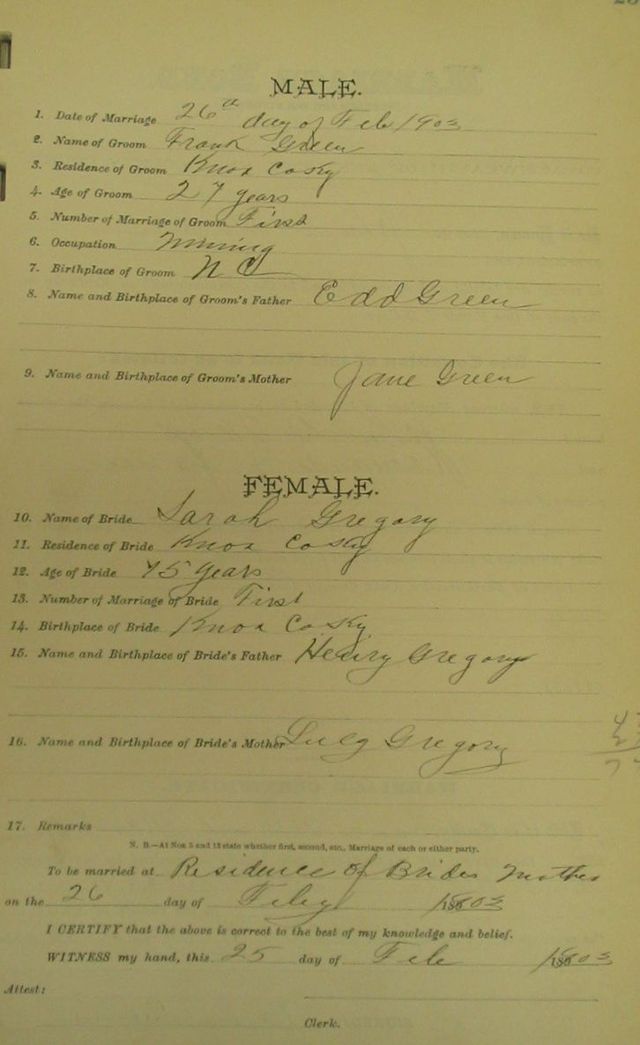 MALE.
1. Date of Marriage 26th day of Feb 1903
2. Name of Groom Frank Green
3. Residence of Groom Knox Co Ky
4. Age of Groom 27 years
5. Number of Marriage of Groom First
6. Occupation Mining
7. Birthplace of Groom N C
8. Name and Birthplace of Groom's Father Edd Green
9. Name and Birthplace of Groom's Mother Jane Green
FEMALE.
10. Name of Bride Sarah Gregory
11. Residence of Bride Knox Co Ky
12. Age of Bride 15 years
13. Number of Marriage of Bride First
14. Birthplace of Bride Knox Co Ky
15. Name and Birthplace of Bride's Father Henry Gregory
16. Name and Birthplace of Bride's Mother Gregory
17. Remarks
N. B.—At Nos 5 and 13 state whether first, second, etc., Marriage of each or either party.
To be married at Residence of Brides Mother
on the 26 day of 1903
I CERTIFY that the above is correct to the best of my knowledge and belief.
WITNESS my hand, this 25 day of Feb 1903
Attest:
Clerk.